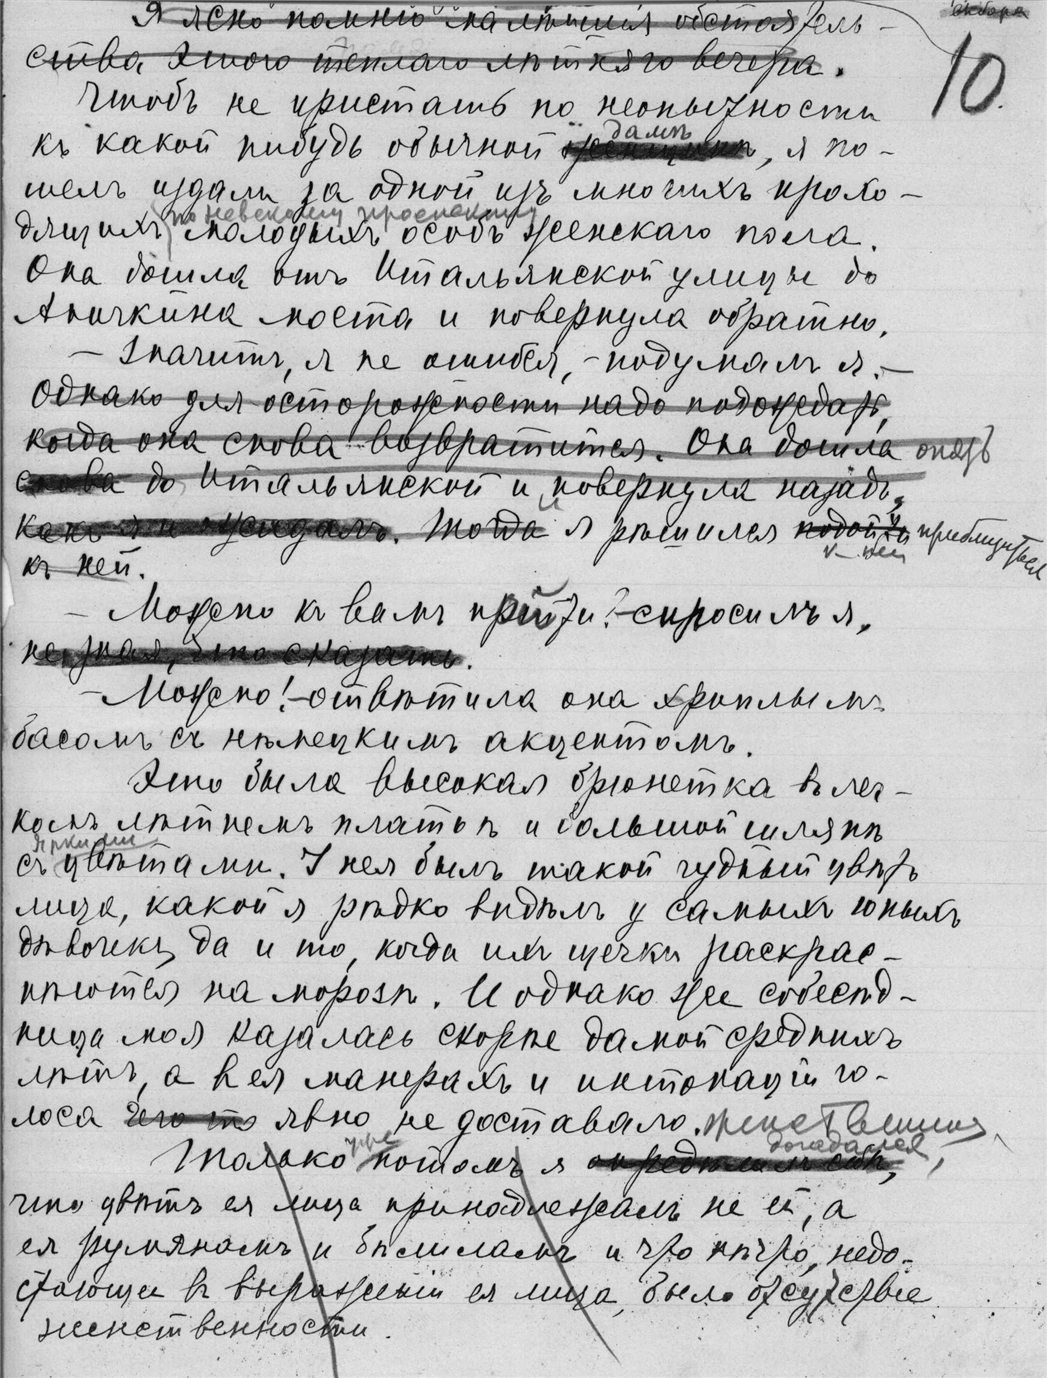 10.
Я ясно помню малѣйшія обстоятель-
ства этого теплаго лѣтняго вечера.
Чтобъ не пристать по неопытности
къ какой нибудь обычной дамѣ, я по-
шелъ издали за одной изъ многихъ прохо-
по Невскому проспекту
дящихъ молодыхъ особъ женскаго пола.
Она дошла отъ Итальянской улицы до
Аничкина моста и повернула обратно.
— Значитъ, я не ошибся, – подумалъ я. —
Однако для осторожности надо подождать,
когда она снова возвратится. Она дошла опять
снова до Итальянской и повернула назадъ,
какъ я и ожидалъ. Тогда и я рѣшился подойти приблизиться
къ ней
къ ней.
— Можно къ вамъ прійти? – спросилъ я,
не зная, что сказать.
— Можно! – отвѣтила она хриплымъ
басомъ съ нѣмецкимъ акцентомъ.
Это была высокая брюнетка въ лег-
комъ лѣтнемъ платьѣ и большой шляпѣ
яркими
съ цвѣтами. У нея былъ такой чудный цвѣтъ
лица, какой я рѣдко видѣлъ у самыхъ юныхъ
дѣвочекъ, да и то, когда ихъ щечки раскрас-
нѣются на морозѣ. И однако же собесѣд-
ница моя казалась скорѣе дамой среднихъ
лѣтъ, а въ ея манерахъ и интонаціи го-
лоса чего то явно не доставало. женственнаго
Только уже потомъ я опредѣлилъ догадался,
что цвѣтъ ея лица принадлежалъ не ей, а
ея румянамъ и бѣлиламъ и что нѣчто, недо-
стающее въ выраженіи ея лица, было отсутствіе
женственности.